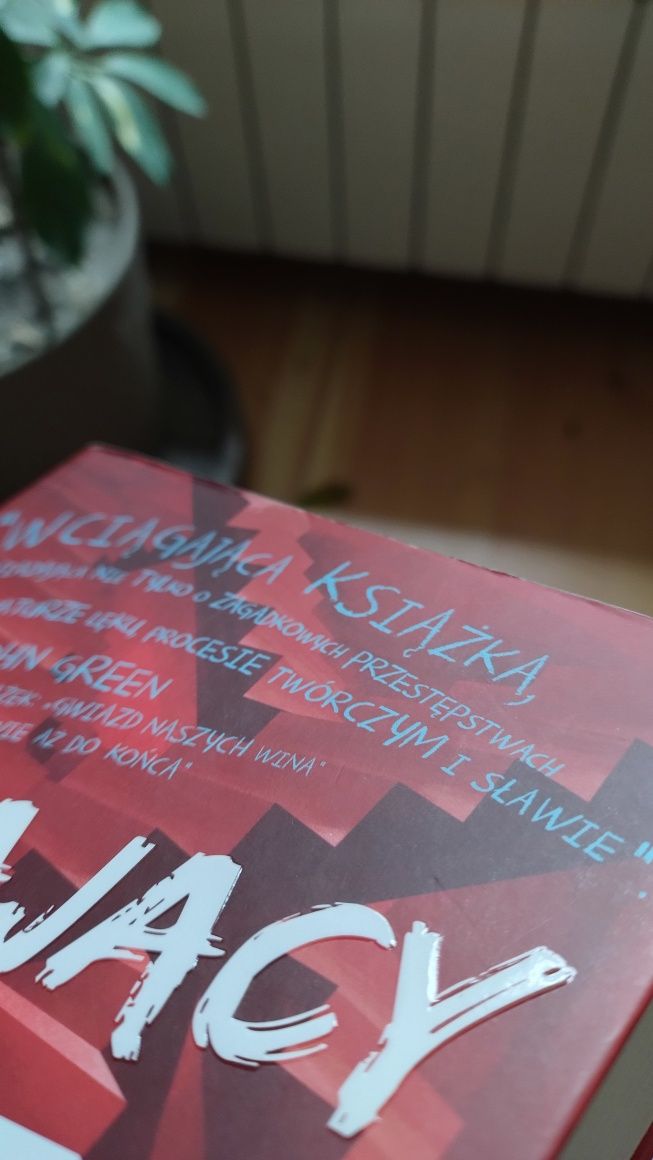 "WCIĄGAJĄCA KSIĄŻKA,
NIE TYLKO O ZAGADKOWYCH PRZESTĘPSTWACH
LĘKU, PROCESIE TWÓRCZYM I SŁAWIE"
GREEN
„GWIAZD NASZYCH WINA"
AŻ DO KOŃCA"
WACY